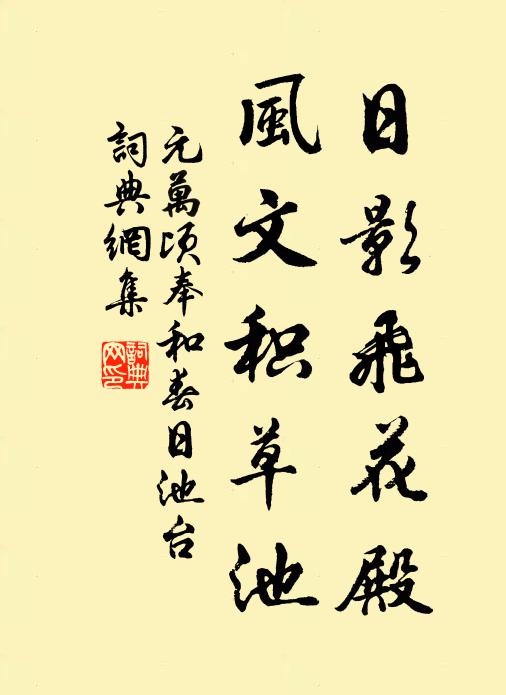 日影飛花殿
風文积草池
元萬頃奉和春日池台
詞典網集
詞典網印